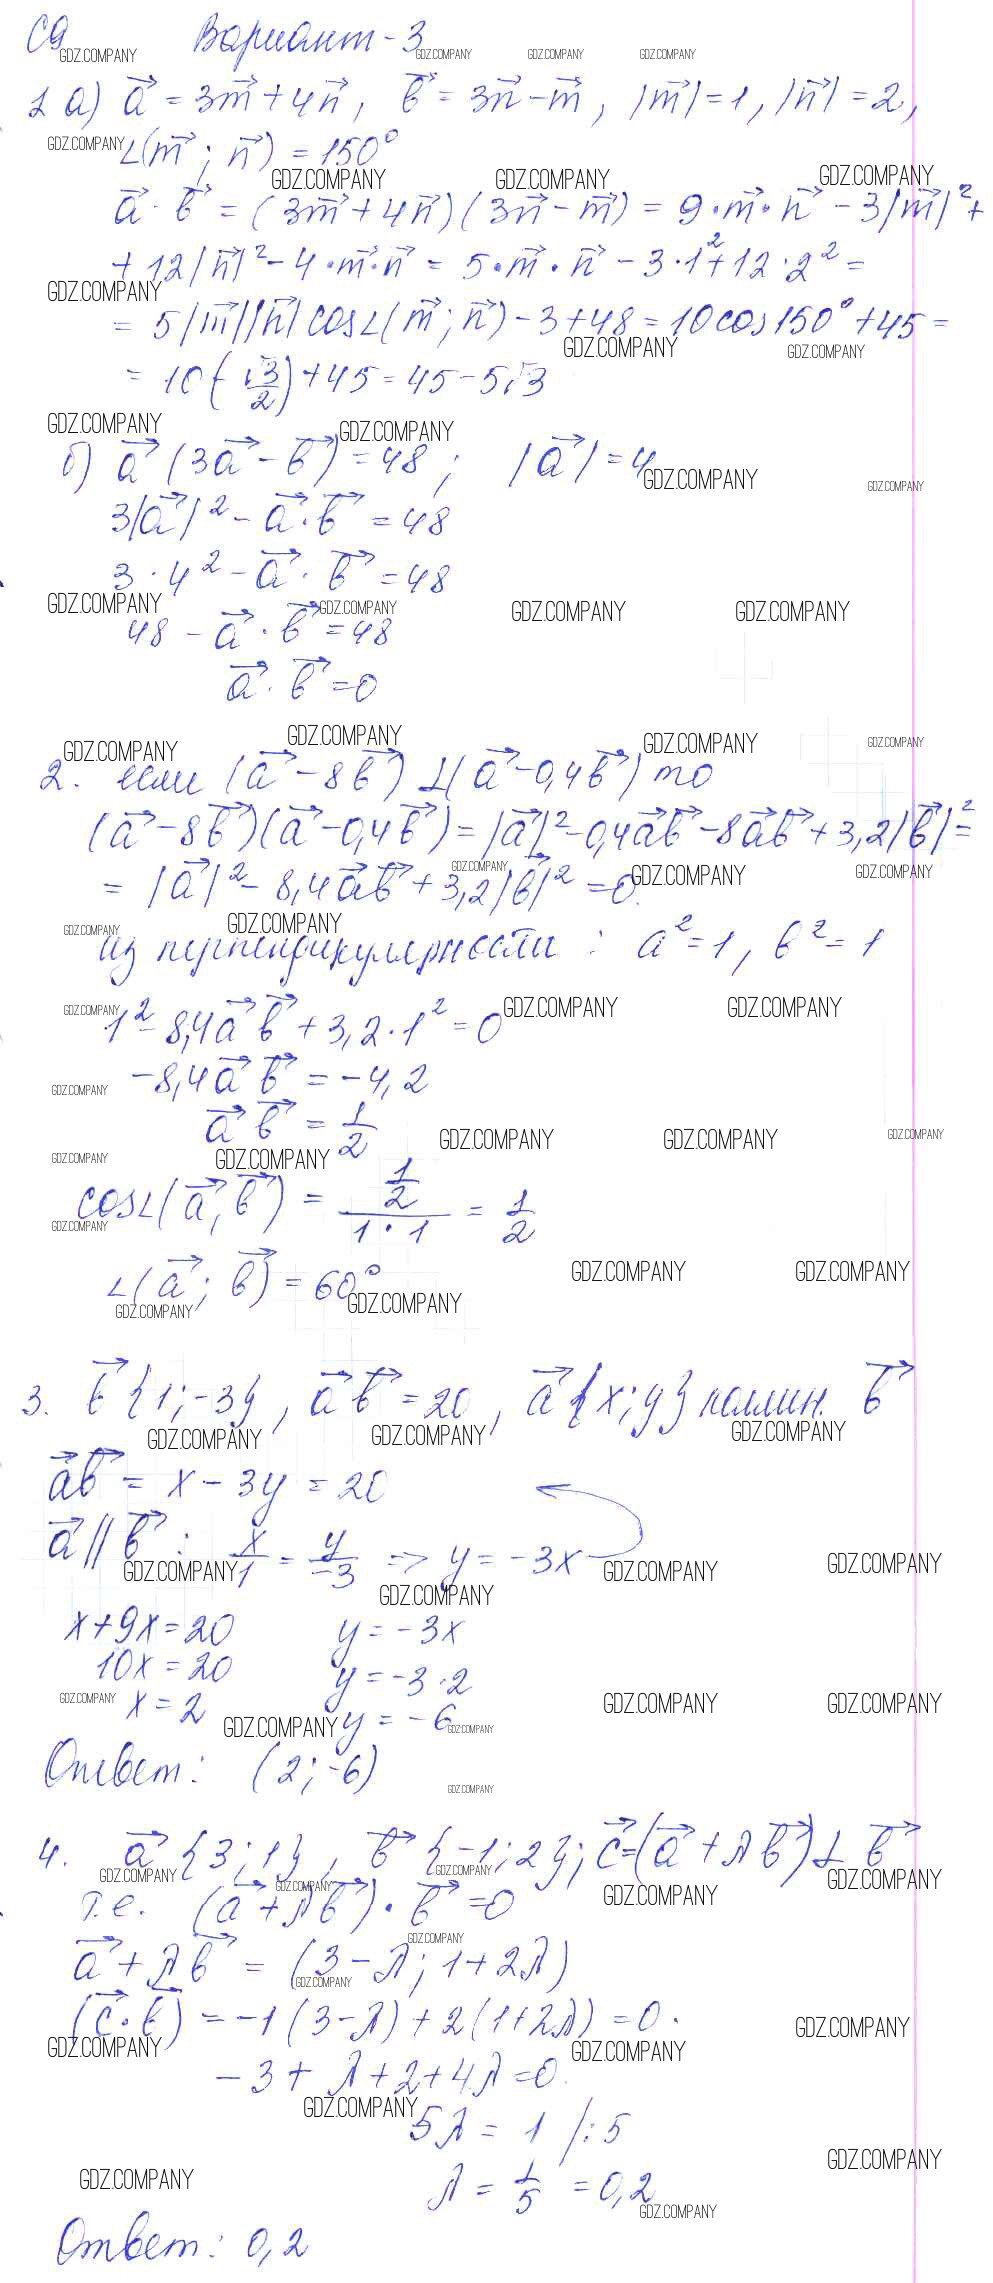 С9 Вариант-3
1 а) a⃗ = 3m⃗ + 4n⃗, b⃗ = 3n⃗ - m⃗, |m⃗| = 1, |n⃗| = 2,
∠(m⃗; n⃗) = 150°
a⃗ · b⃗ = (3m⃗ + 4n⃗)(3n⃗ - m⃗) = 9·m⃗·n⃗ - 3|m⃗|² +
+ 12|n⃗|² - 4·m⃗·n⃗ = 5·m⃗·n⃗ - 3·1² + 12·2² =
= 5|m⃗||n⃗| cos∠(m⃗; n⃗) - 3 + 48 = 10cos150° + 45 =
= 10(-√3/2) + 45 = 45 - 5√3
б) a⃗ (3a⃗ - b⃗) = 48; |a⃗| = 4
3|a⃗|² - a⃗·b⃗ = 48
3·4² - a⃗·b⃗ = 48
48 - a⃗·b⃗ = 48
a⃗·b⃗ = 0
2. если (a⃗ - 8b⃗) ⊥ (a⃗ - 0,4b⃗) то
(a⃗ - 8b⃗)(a⃗ - 0,4b⃗) = |a⃗|² - 0,4a⃗b⃗ - 8a⃗b⃗ + 3,2|b⃗|² =
= |a⃗|² - 8,4a⃗b⃗ + 3,2|b⃗|² = 0.
из перпендикулярности: a² = 1, b² = 1
1² - 8,4a⃗b⃗ + 3,2·1² = 0
-8,4a⃗b⃗ = -4,2
a⃗b⃗ = 1/2
cos∠(a⃗, b⃗) = (1/2)/(1·1) = 1/2
∠(a⃗; b⃗) = 60°
3. b⃗{1; -3}, a⃗b⃗ = 20, a⃗{x; y} коллин. b⃗
a⃗b⃗ = x - 3y = 20
a⃗ || b⃗: x/1 = y/-3 => y = -3x
x + 9x = 20 y = -3x
10x = 20 y = -3·2
x = 2 y = -6
Ответ: (2; -6)
4. a⃗{3; 1}, b⃗{-1; 2}; c⃗ = (a⃗ + λb⃗) ⊥ b⃗
т.е. (a⃗ + λb⃗)·b⃗ = 0
a⃗ + λb⃗ = (3 - λ; 1 + 2λ)
(c⃗·b⃗) = -1(3 - λ) + 2(1 + 2λ) = 0.
-3 + λ + 2 + 4λ = 0.
5λ = 1 /:5
λ = 1/5 = 0,2
Ответ: 0,2
GDZ.COMPANY